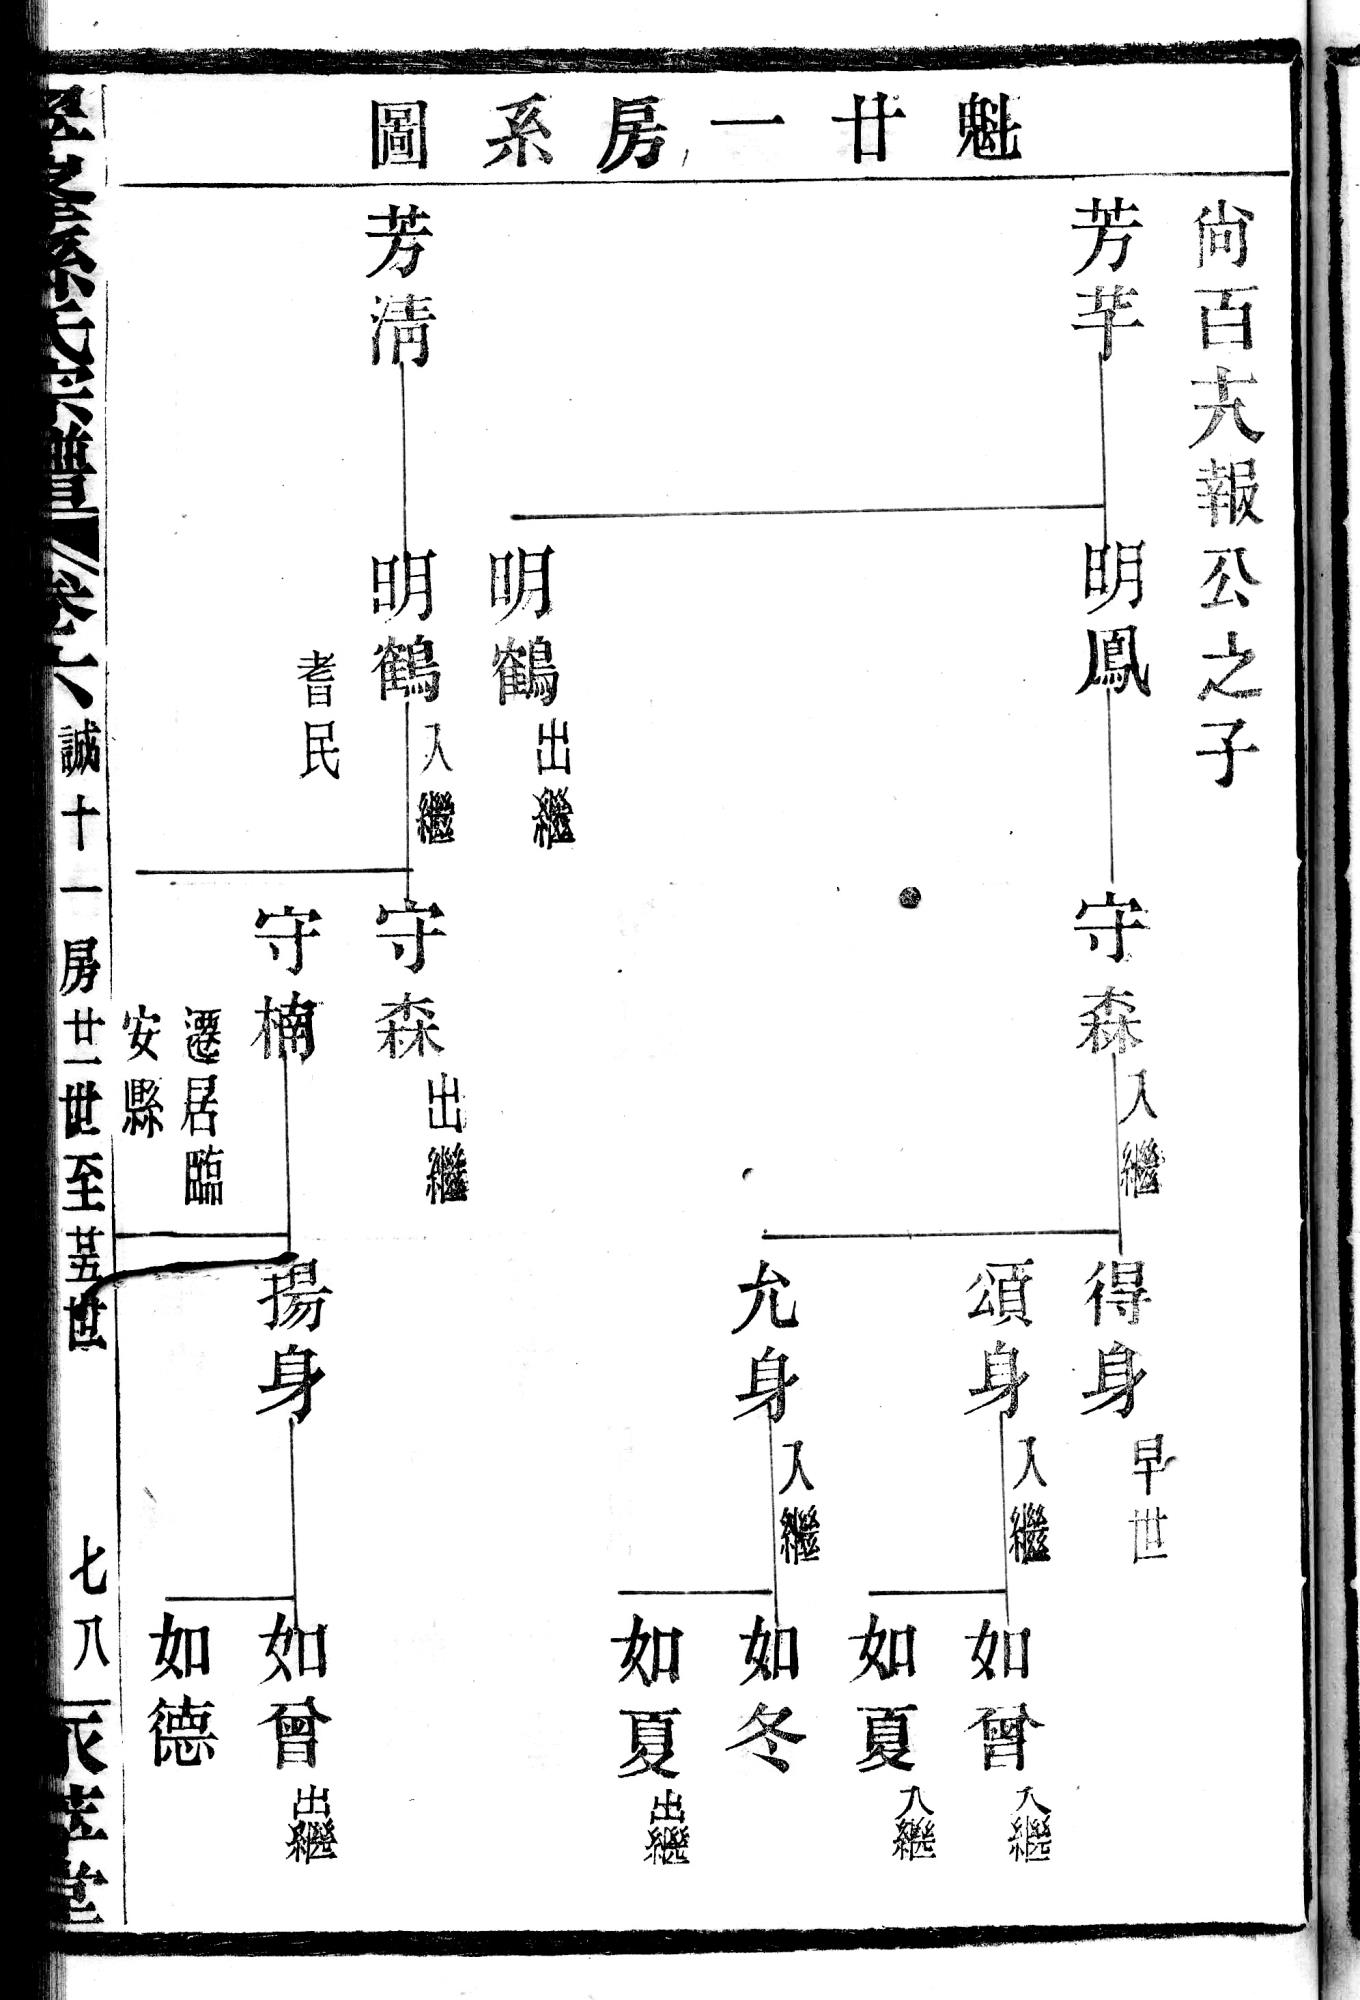 魁廿一房系圖
尙百六報公之子
芳芊
芳淸
明鳳
明鶴
出繼
明鶴
入繼
耆民
守森
入繼
守森
出繼
守楠
遷居臨
安縣
得身
早世
頌身
入繼
允身
入繼
揚身
如曾
入繼
如夏
入繼
如冬
如夏
出繼
如曾
出繼
如德
孫氏宗譜
卷六
誠十一房廿一世至廿五世
七八
堂